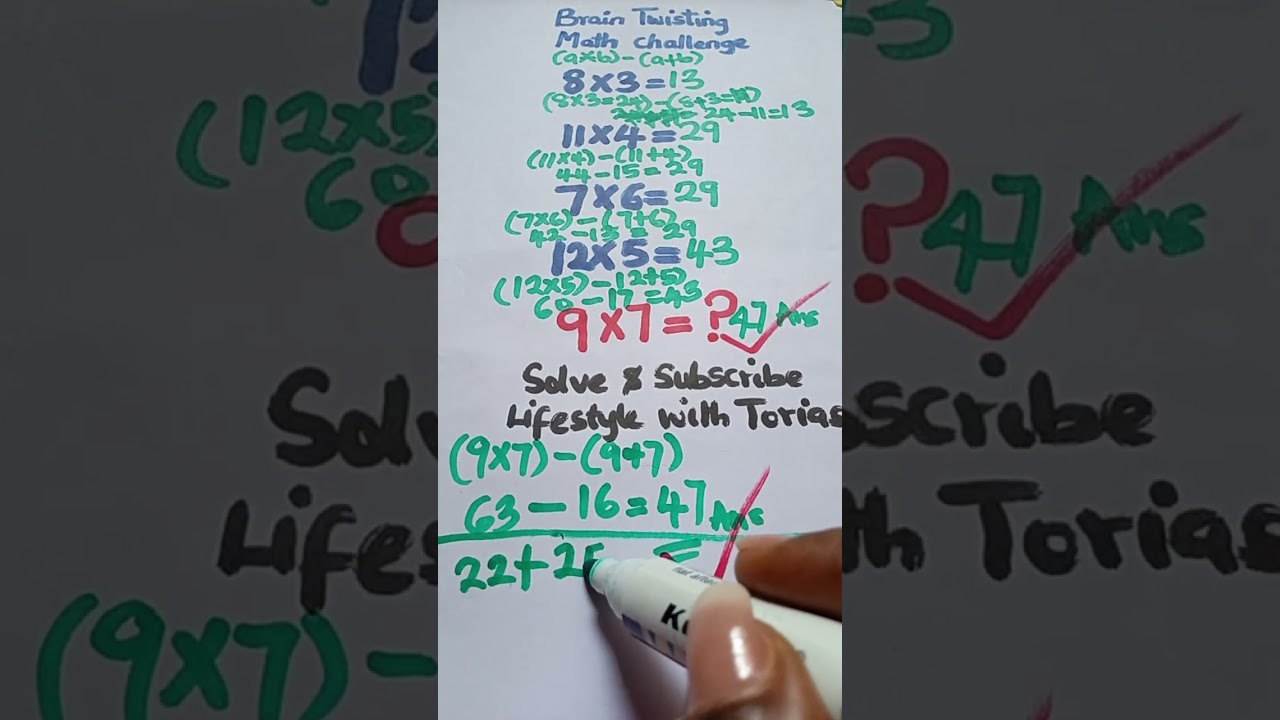 Brain Twisting
Math challenge
(a×b)-(a+b)
8×3=13
(8×3=24)-(8+3=11)
= 24-11=13
11×4=29
(11×4)-(11+4)
44-15=29
7×6=29
(7×6)-(7+6)
42-13=29
12×5=43
(12×5)-(12+5)
60-17=43
9×7=?47 Ans
Solve & Subscribe
Lifestyle with Torias
(9×7)-(9+7)
63-16=47 Ans
22+25 =